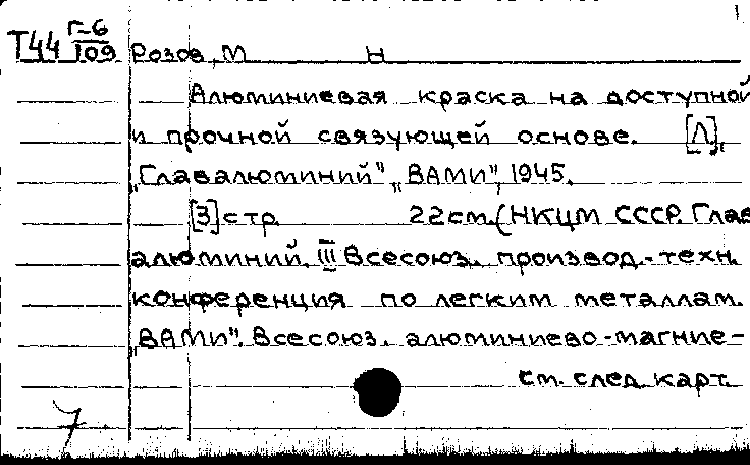 Г-6
Т44 109 Розов, М Н
Алюминиевая краска на доступной
и прочной связующей основе. [Л],
„Главалюминий", „ВАМИ", 1945.
[3] стр. 22 см. (НКЦМ СССР. Глав
алюминий. III Всесоюз. производ.-техн.
конференция по легким металлам.
„ВАМИ". Всесоюз. алюминиево-магние-
см. след. карт.
7